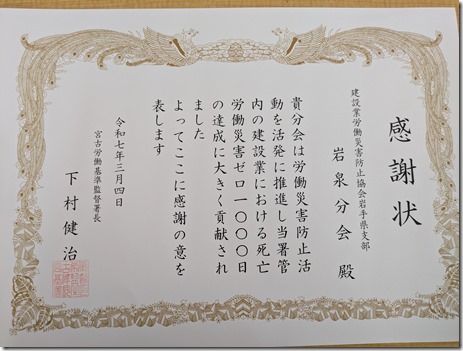 感謝状
建設業労働災害防止協会岩手県支部
岩泉分会 殿
貴分会は労働災害防止活
動を活発に推進し当署管
内の建設業における死亡
労働災害ゼロ一〇〇〇日
の達成に大きく貢献され
ました
よってここに感謝の意を
表します
令和七年三月四日
宮古労働基準監督署長
下村健治